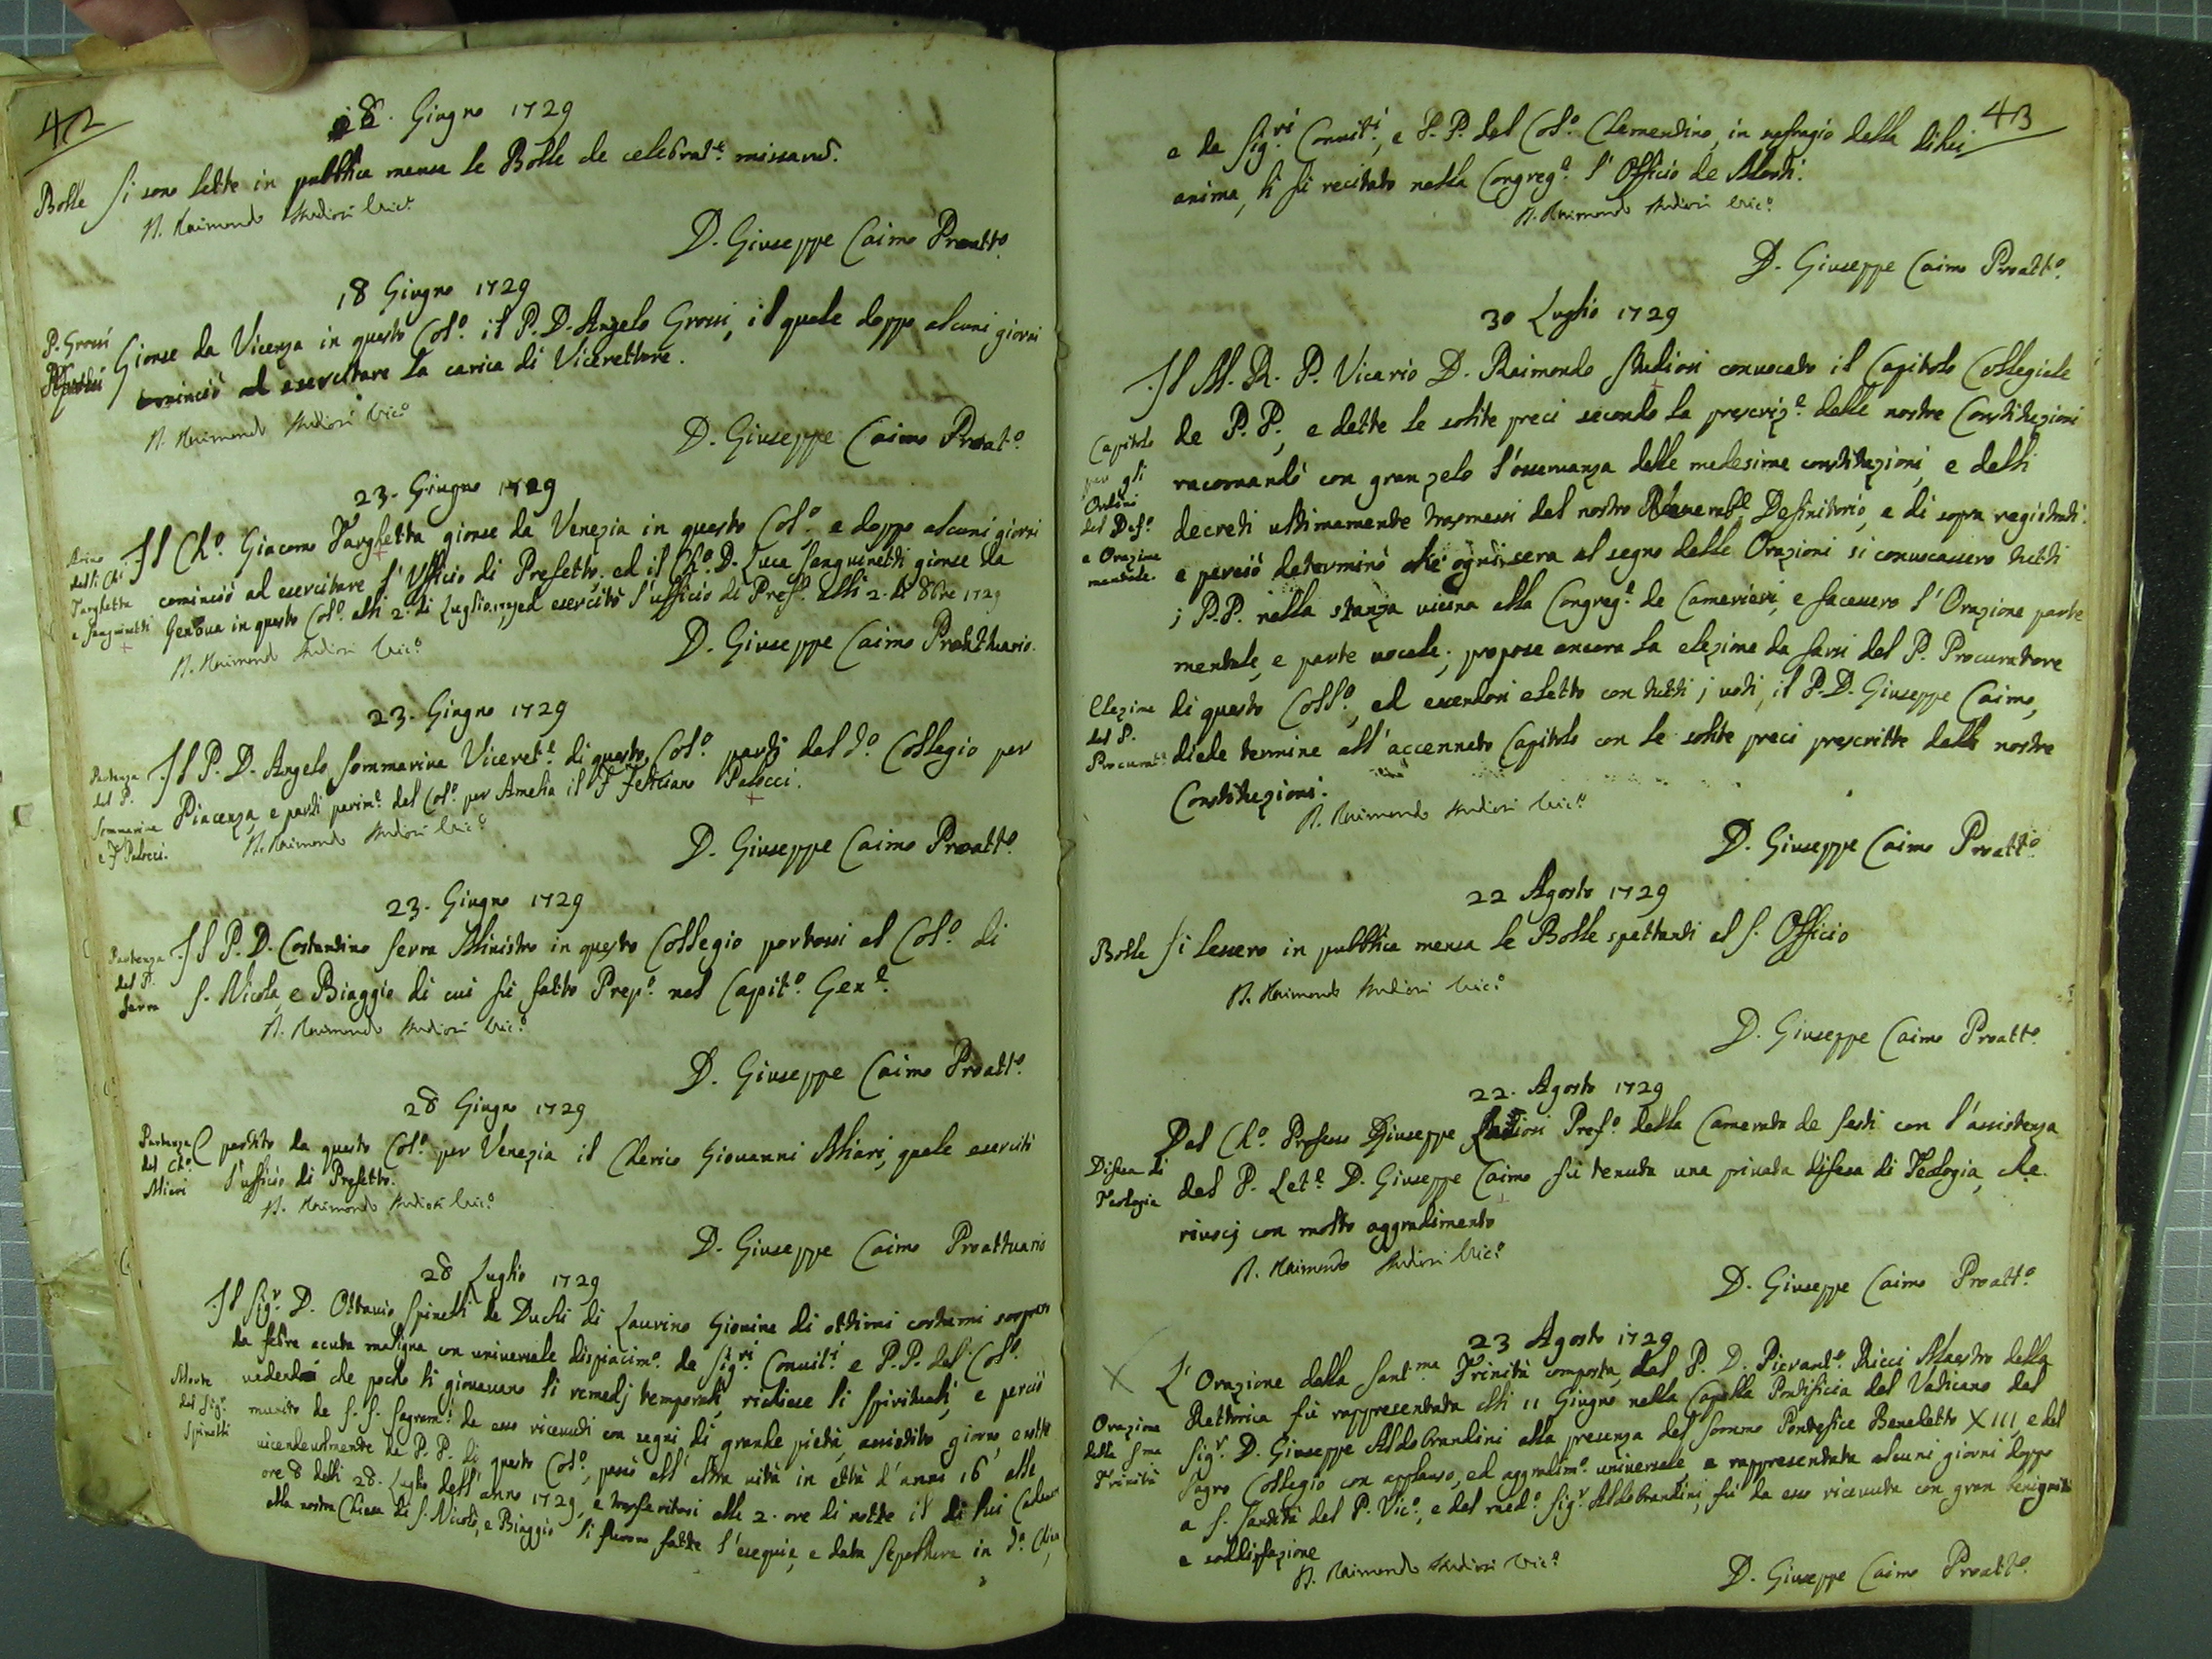 42
18. Giugno 1729
Bolle Si sono lette in pubblica mensa le Bolle de celebrat.e missarum.
D. Raimondo Studiosi Vic.o
D. Giuseppe Caimo Proatt.o
18 Giugno 1729
P. Grossi
Gionse da Vicenza in questo Col.o il P. D. Angelo Grossi, il quale doppo alcuni giorni
cominciò ad esercitare la carica di Vicerettore.
D. Raimondo Studiosi Vic.o
D. Giuseppe Caimo Proat.o
23. Giugno 1729
Arivo
delli Ch.i
Targhetta
e Sanguinetti
Il Ch.o Giacomo Targhetta gionse da Venezia in questo Col.o e doppo alcuni giorni
cominciò ad esercitare l'Ufficio di Prefetto. ed il Ch.o D. Luca Sanguinetti gionse da
Genova in questo Col.o alli 2. di Luglio 1729 ed esercitò l'ufficio di Pref.o alli 2. di 8bre 1729
D. Raimondo Studiosi Vic.o
D. Giuseppe Caimo Proattuario.
23. Giugno 1729
Partenza
del P.
Sommariva
e F. Palocci.
Il P. D. Angelo Sommariva Viceret.e di questo Col.o partì dal d.o Collegio per
Piacenza, e partì parim.e dal Col.o per Amelia il F. Feliciano Palocci.
D. Raimondo Studiosi Vic.o
D. Giuseppe Caimo Proatt.o
23. Giugno 1729
Partenza
del P.
Serra
Il P. D. Costantino Serra Ministro in questo Collegio portossi al Col.o di
S. Nicola, e Biaggio di cui fù fatto Prep.o nel Capit.o Gen.e
D. Raimondo Studiosi Vic.o
D. Giuseppe Caimo Proatt.o
28 Giugno 1729
Partenza
del Ch.o
Miari
È partito da questo Col.o per Venezia il Cherico Giovanni Miari, quale esercitò
l'ufficio di Prefetto.
D. Raimondo Studiosi Vic.o
D. Giuseppe Caimo Proattuario
28 Luglio 1729
Morte
del Sig.r
Spinelli
Il Sig.r D. Ottavio Spinelli de Duchi di Laurino Giovine di ottimi costumi sorpreso
da febre acuta maligna con universale dispiacim.o de Sig.ri Convit.i e P.P. del Col.o
vedendo che poco li giovavano li remedj temporali, richiese li spirituali, e perciò
munito de S. S. Sagram.i da esso ricevuti con segni di grande pietà, assistito giorno, e notte
vicendevolmente da P. P. di questo Col.o, passò all'altra vita in età d'anni 16 alle
ore 8 delli 28. Luglio dell'anno 1729, e trasferitosi alle 2. ore di notte il di lui Cadavere
alla nostra Chiesa di S. Nicolò, e Biaggio li furono fatte l'esequie, e data sepoltura in d.a Chiesa,
43
e da Sig.ri Convit.i, e P. P. del Col.o Clementino, in suffragio della di lui
anima, li fù recitato nella Congreg.e l'Officio de Morti.
D. Raimondo Studiosi Vic.o
D. Giuseppe Caimo Proatt.o
30 Luglio 1729
Capitolo
per gli
Ordini
del Def.o
e Orazione
mentale.
Il M. R. P. Vicario D. Raimondo Studiosi convocato il Capitolo Collegiale
de P. P., e dette le solite preci secondo la prescriz.e delle nostre Constituzioni
racomandò con gran zelo l'osservanza delle medesime constituzioni, e delli
decreti ultimamente trasmessi dal nostro Venerab.e Definitorio, e di sopra registrati.
e perciò determinò che ogni sera al segno delle Orazioni si convocassero tutti
i P.P. nella stanza vicina alla Congreg.e de Camerieri, e facessero l'Orazione parte
mentale, e parte vocale; propose ancora la elezione da farsi del P. Procuratore
Elezione
del P.
Procurat.e
di questo Coll.o, ed essendosi eletto con tutti i voti, il P. D. Giuseppe Caimo,
diede termine all'accennato Capitolo con le solite preci prescritte dalle nostre
Constituzioni.
D. Raimondo Studiosi Vic.o
D. Giuseppe Caimo Proatt.o
22 Agosto 1729
Bolle Si lessero in pubblica mensa le Bolle spettanti al S. Officio
D. Raimondo Studiosi Vic.o
D. Giuseppe Caimo Proatt.o
22. Agosto 1729
Difesa di
Teologia
Dal Ch.o Professo Giuseppe Pref.o della Camerata de Sesti con l'assistenza
del P. Let.e D. Giuseppe Caimo fù tenuta una privata difesa di Teologia, che
riuscì con molto aggradimento
D. Raimondo Studiosi Vic.o
D. Giuseppe Caimo Proatt.o
23 Agosto 1729
Orazione
della S.ma
Trinità
L'Orazione della Sant.ma Trinità composta dal P. D. Pierant.o Ricci Maestro della
Rettorica fù rappresentata alli 11 Giugno nella Capella Pontificia del Vaticano dal
Sig.r D. Giuseppe Aldobrandini alla presenza del Sommo Pontefice Benedetto XIII, e del
Sagro Collegio con applauso, ed aggradim.o universale e rappresentata alcuni giorni doppo
a S. Santità dal P. Vic.o, e dal med.o Sig.r Aldobrandini, fù da esso ricevuta con gran benignità
e soddisfazione
D. Raimondo Studiosi Vic.o
D. Giuseppe Caimo Proatt.o